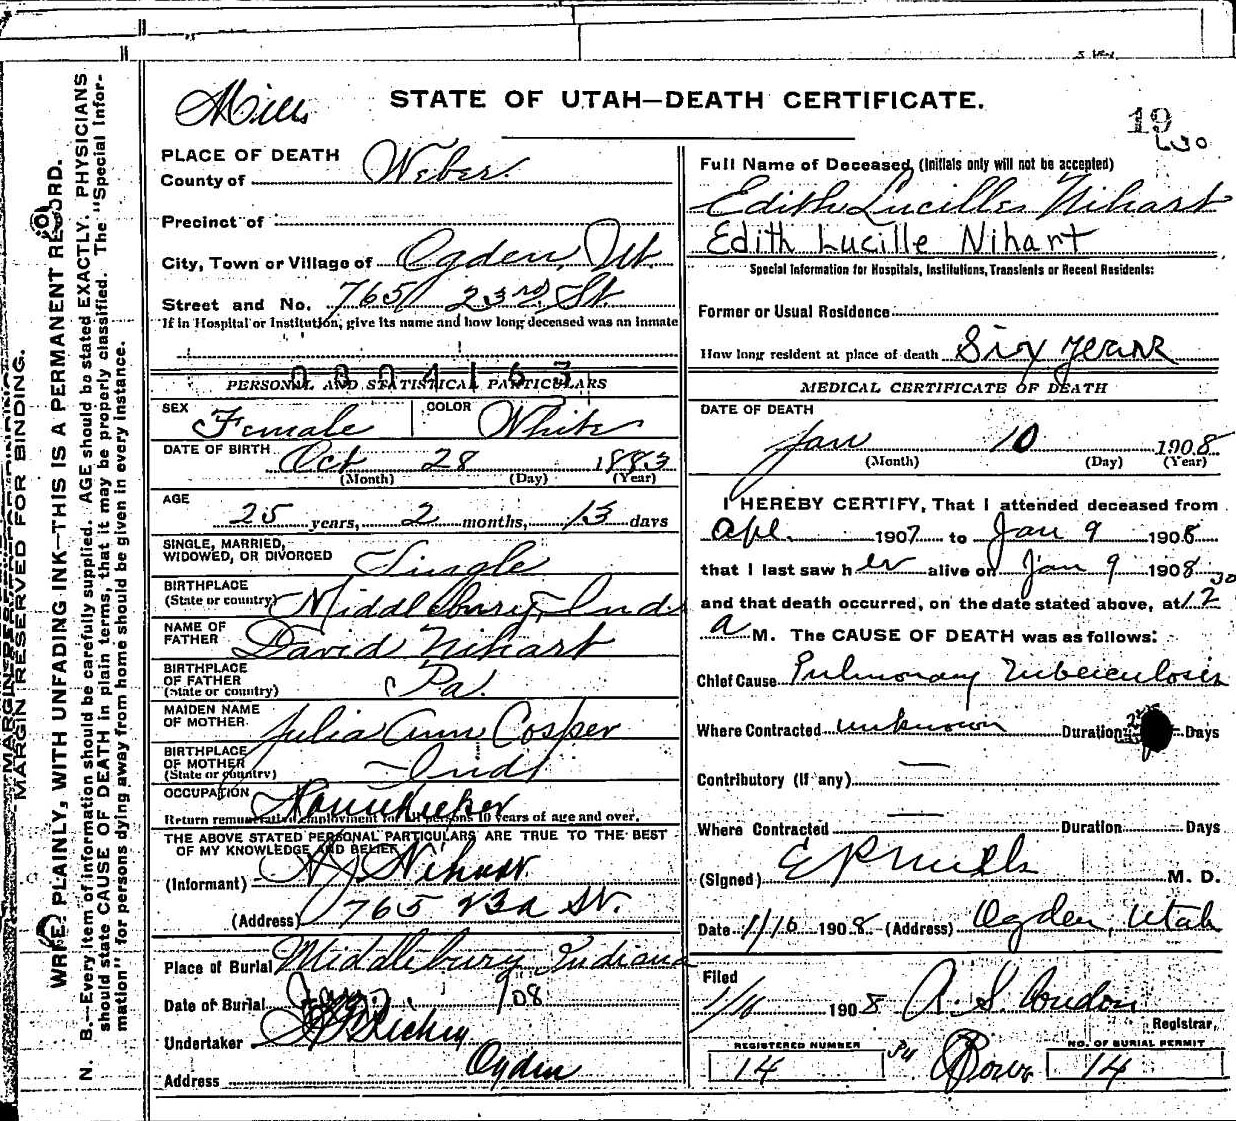 Mills
STATE OF UTAH—DEATH CERTIFICATE.
19
630
PLACE OF DEATH
County of Weber.
Precinct of
City, Town or Village of Ogden, Ut.
Street and No. 765 23rd St
If in Hospital or Institution, give its name and how long deceased was an inmate
0804163
PERSONAL AND STATISTICAL PARTICULARS
SEX Female COLOR White
DATE OF BIRTH Oct 28 1883
(Month) (Day) (Year)
AGE 25 years, 2 months, 13 days
SINGLE, MARRIED,
WIDOWED, OR DIVORCED Single
BIRTHPLACE
(State or country) Middlebury, Ind.
NAME OF
FATHER David Nihart
BIRTHPLACE
OF FATHER
(State or country) Pa.
MAIDEN NAME
OF MOTHER Julia Ann Cosper
BIRTHPLACE
OF MOTHER
(State or country) Ind
OCCUPATION Housekeeper
Return remunerative employment for all persons 10 years of age and over.
THE ABOVE STATED PERSONAL PARTICULARS ARE TRUE TO THE BEST
OF MY KNOWLEDGE AND BELIEF
(Informant) Nihart
(Address) 765 23d St.
Place of Burial Middlebury Indiana
Date of Burial Jan 908
Undertaker Richey
Address Ogden
Full Name of Deceased (Initials only will not be accepted)
Edith Lucille Nihart
Edith Lucille Nihart
Special Information for Hospitals, Institutions, Transients or Recent Residents:
Former or Usual Residence
How long resident at place of death Six years
MEDICAL CERTIFICATE OF DEATH
DATE OF DEATH
Jan 10 1908
(Month) (Day) (Year)
I HEREBY CERTIFY, That I attended deceased from
Apl. 1907 to Jan 9 1908
that I last saw her alive on Jan 9 1908
and that death occurred, on the date stated above, at 12 30
a M. The CAUSE OF DEATH was as follows:
Chief Cause Pulmonary Tuberculosis
Where Contracted unknown Duration Days
Contributory (If any) —
Where Contracted — Duration Days
(Signed) E P Mills M. D.
Date 1/10 1908 (Address) Ogden, Utah
Filed
1/11 1908 A. S. Condon
Registrar,
REGISTERED NUMBER
14
NO. OF BURIAL PERMIT
14
MARGIN RESERVED FOR BINDING.
WRITE PLAINLY, WITH UNFADING INK—THIS IS A PERMANENT RECORD.
N. B.—Every item of information should be carefully supplied. AGE should be stated EXACTLY. PHYSICIANS
should state CAUSE OF DEATH in plain terms, that it may be properly classified. The "Special Infor-
mation" for persons dying away from home should be given in every instance.